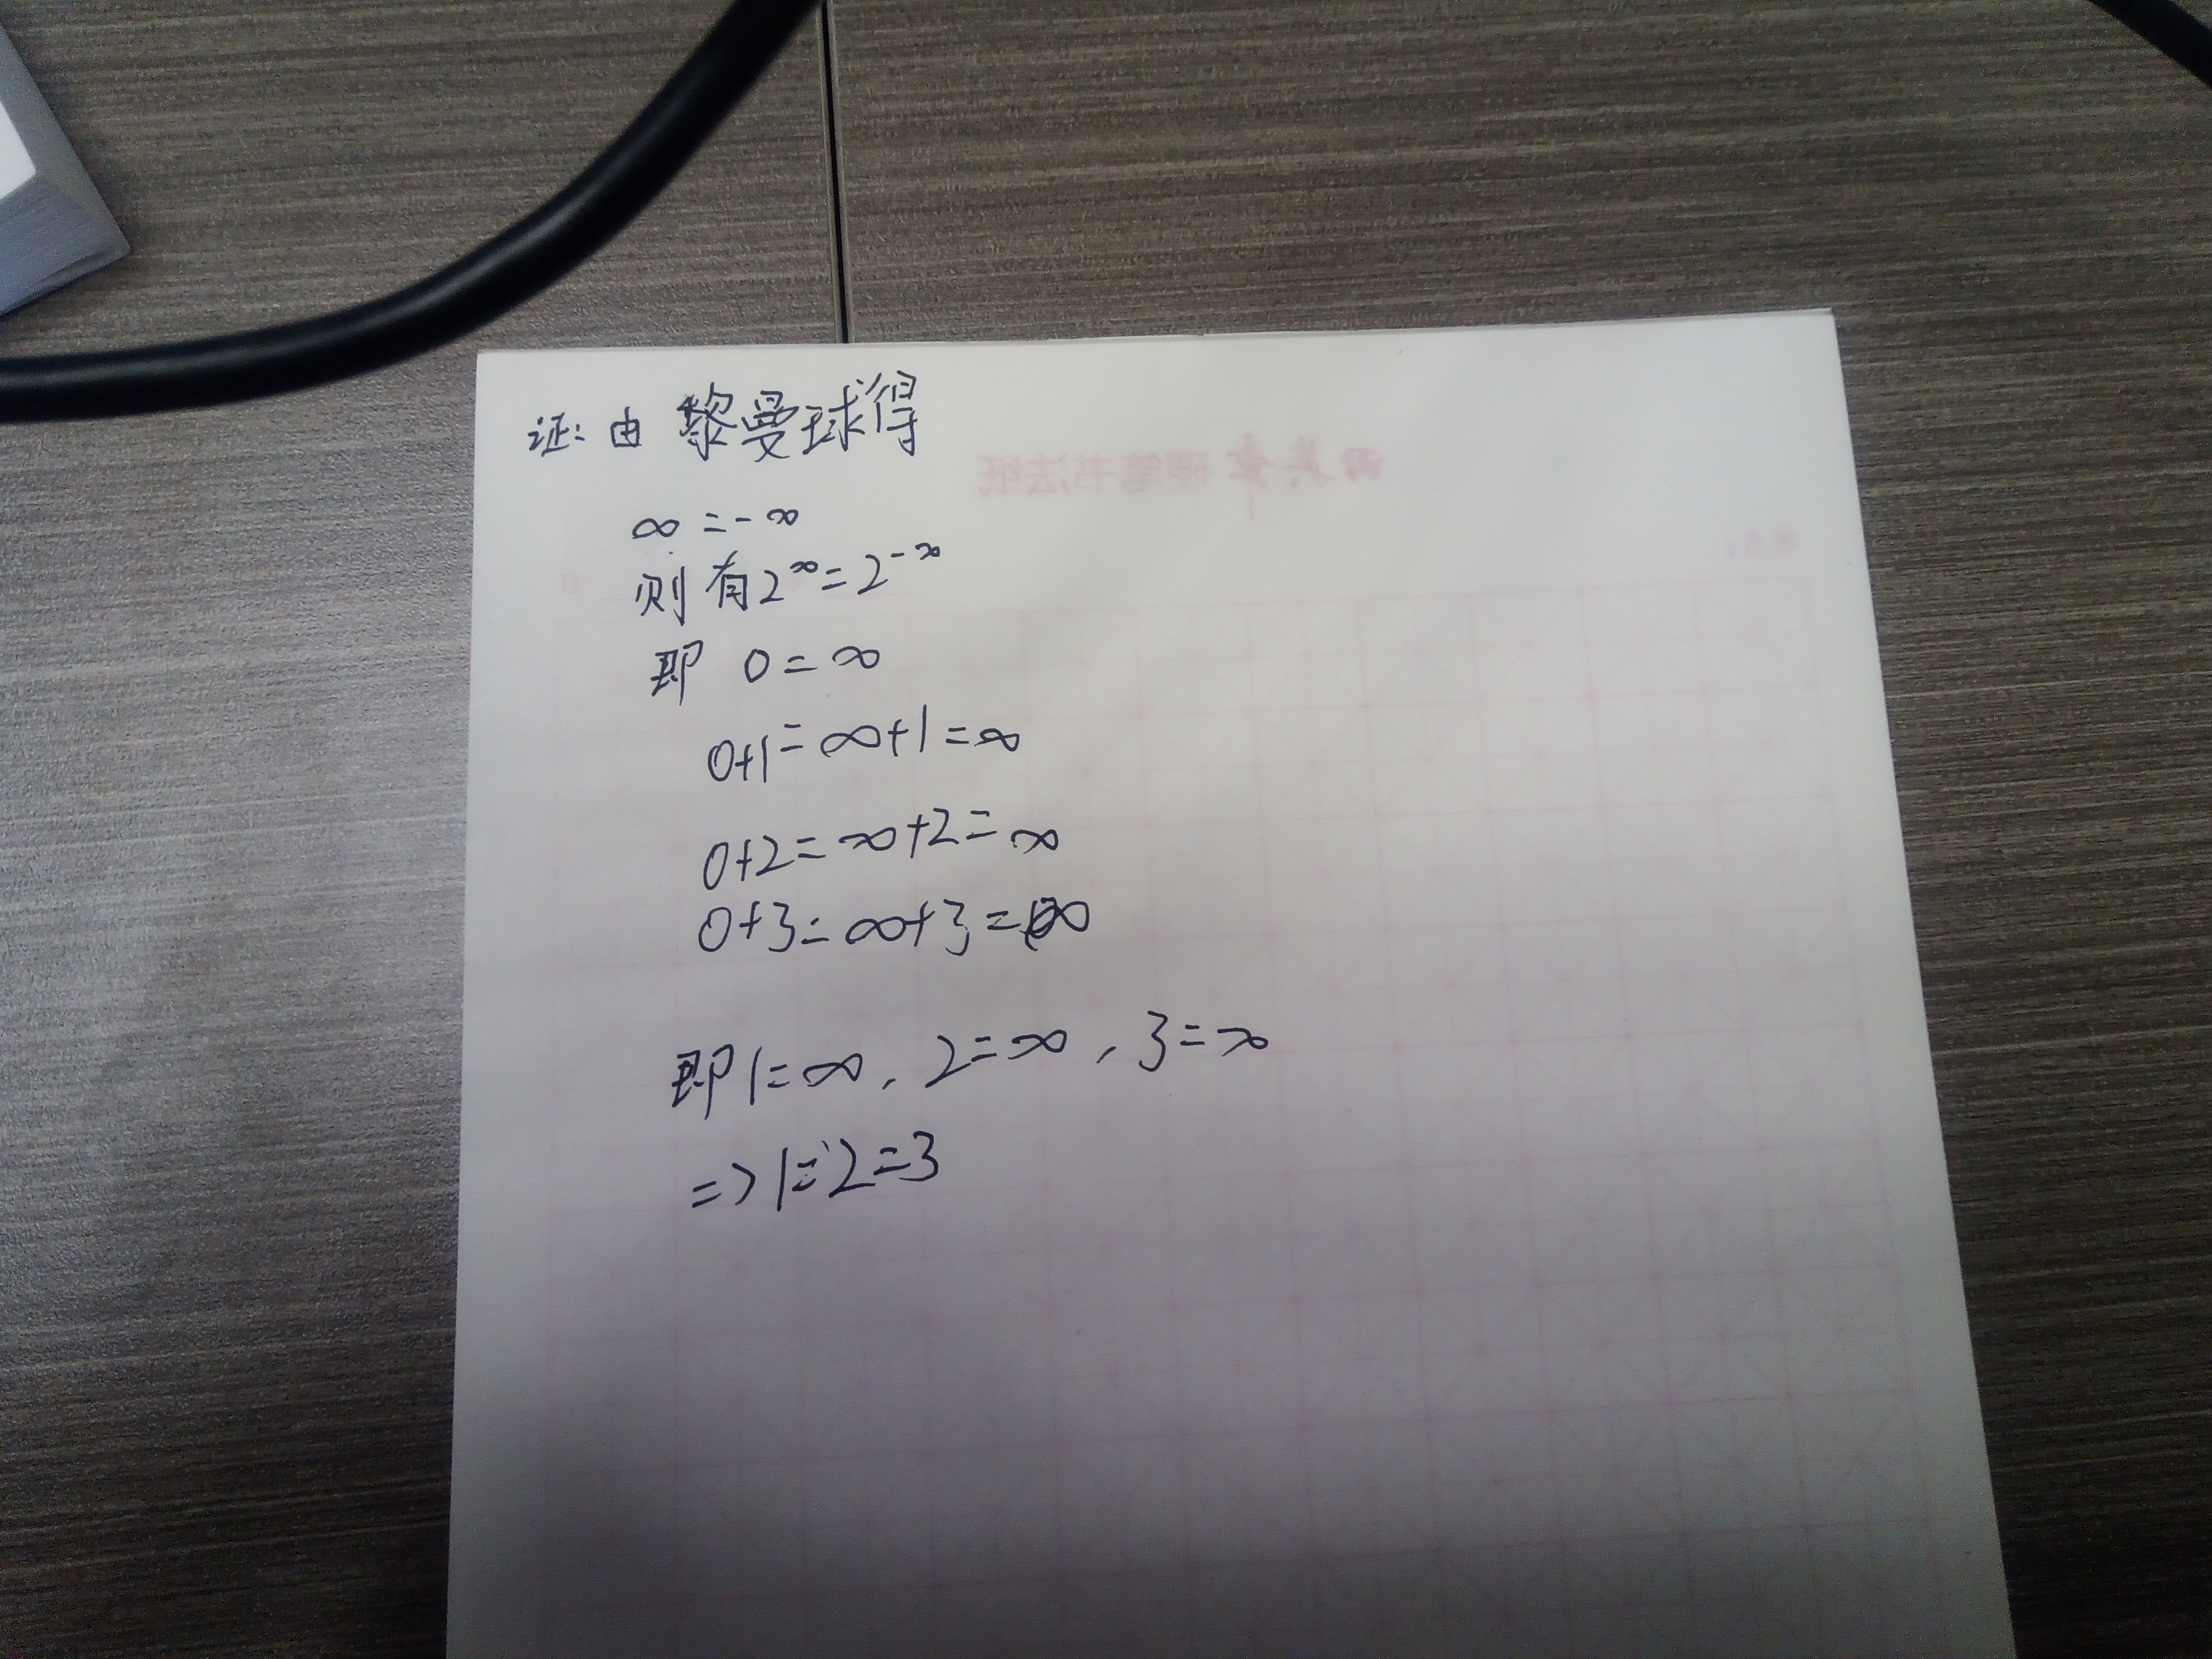 证: 由 黎曼球得
∞ = -∞
则有 2^∞ = 2^-∞
即 0 = ∞
0+1 = ∞+1 = ∞
0+2 = ∞+2 = ∞
0+3 = ∞+3 = ∞
即 1 = ∞, 2 = ∞, 3 = ∞
=> 1 = 2 = 3
硬笔书法纸